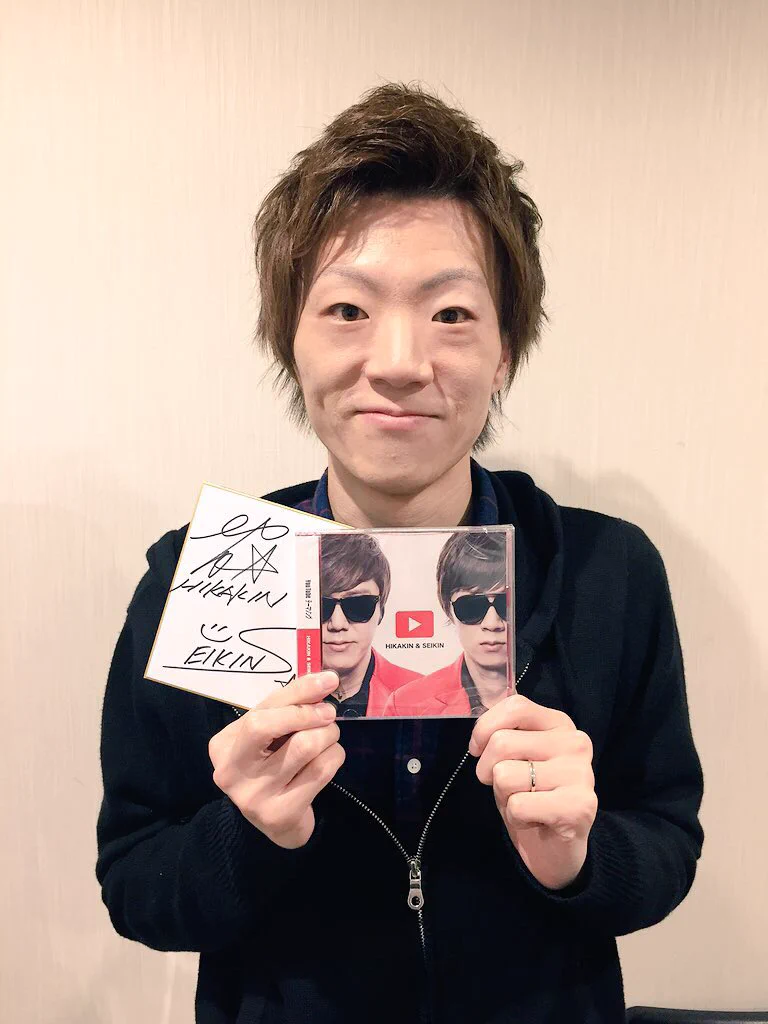 HIKAKIN
SEIKIN
YouTube テーマソング
HIKAKIN & SEIKIN
HIKAKIN & SEIKIN